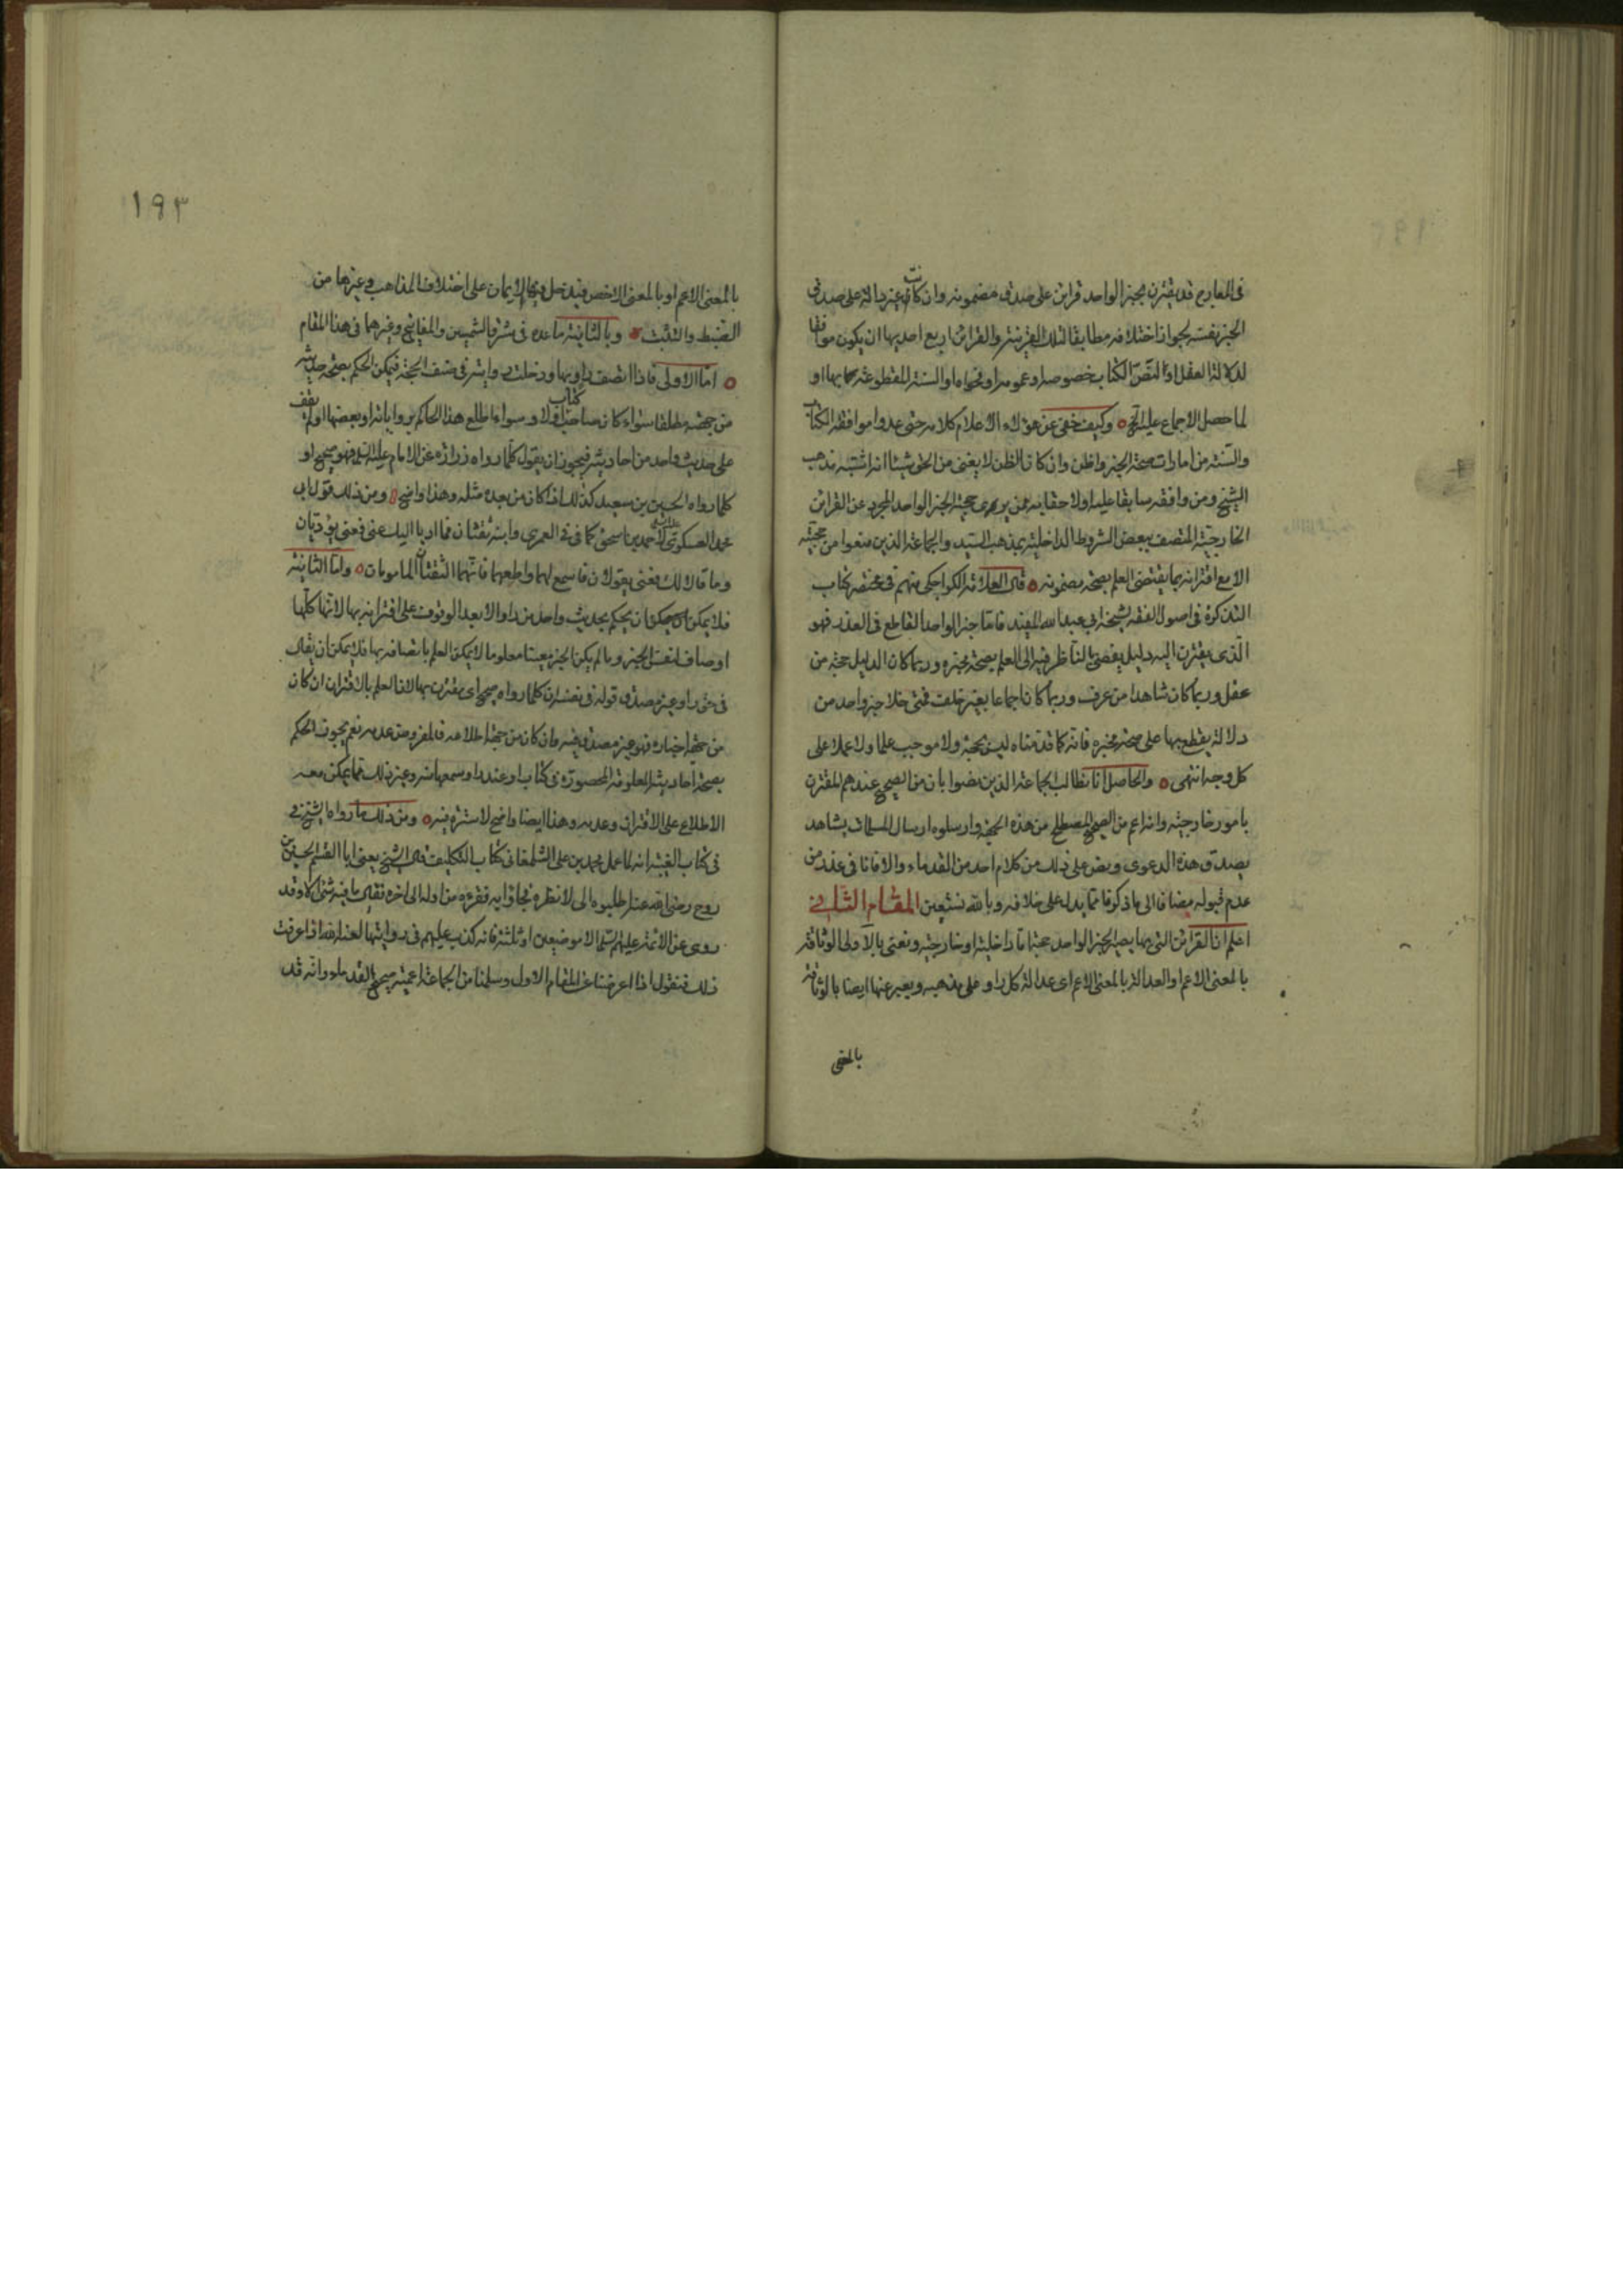 في المعارج قد يقترن بخبر الواحد قراين على صدق مضمونه وان كانت غير دالة على صدق
الخبر نفسه لجواز اختلافه مطابقا لتلك القرينة والقراين اربع احديها ان يكون موافقا
لدلالة العقل او النص الكتاب خصوصه او عمومه او فحواه او السنة المقطوعة بها او
لما حصل الاجماع عليه الخ وكيف خفى عن هؤلاء الاعلام كلامه حتى عدوا موافقة الكتاب
والسنة من امارات صحة الخبر واظن وان كان الظن لا يغنى من الحق شيئا انه اشتبه مذهب
الشيخ ومن وافقه سابقا عليه اولاحقا به ممن يرى حجية الخبر الواحد المجرد عن القراين
الخارجية المتصف ببعض الشروط الداخلية بمذهب السيد والجماعة الذين منعوا من حجيته
الا مع اقترانه بما يقتضى العلم بصحة مضمونه قال العلامة الكراجكي منهم في مختصر كتاب
التذكرة في اصول الفقه لشيخه ابي عبد الله المفيد فاما خبر الواحد القاطع في العذر فهو
الذي يقترن اليه دليل يفضى بالناظر فيه الى العلم بصحة مخبره وربما كان الدليل حجة من
عقل وربما كان شاهدا من عرف وربما كان اجماعا بغير خلف فمتى خلا خبر واحد من
دلالة يقطع بها على صحة مخبره فانه كما قدمناه ليس بحجة ولا موجب علما ولا عملا على
كل وجه انتهى والحاصل انا نطالب الجماعة الذين مضوا بان من الصحيح عندهم المقترن
بامور خارجية وانه اعم من الصحيح المصطلح من هذه الجهة وارسلوه ارسال المسلمات بشاهد
يصدق هذه الدعوى ونص على ذلك من كلام احد من القدماء والا فانا في عذر من
عدم قبوله مضافا الى ما ذكرنا مما يدل على خلافه وبالله نستعين المقام الثاني
اعلم ان القراين التي بها يصير الخبر الواحد حجة اما داخلية او خارجية ونعنى بالاولى الوثاقة
بالمعنى الاعم او العدالة بالمعنى الاعم اى عدالة كل راو على مذهبه ويعبر عنها ايضا بالوثاقة
بالمعنى
١٩٣
بالمعنى الاعم او بالمعنى الاخص فيدخل فيها الايمان على اختلاف المذاهب وغيرها من
الضبط والتثبت وبالثانية ما عده في مشرق الشمسين والمفاتيح وغيرهما في هذا المقام
اما الاولى فاذا اتصف راو بها ودخلت روايته في صنف الحجة فيمكن الحكم بصحة حديثه
من جهته مطلقا سواء كان صاحب كتاب اولا وسواء اطلع هذا الحاكم برواياته او بعضها او لم يقف
على حديث واحد من احاديثه فيجوز ان يقول كلما رواه زرارة عن الامام عليه السلام فهو صحيح او
كلما رواه الحسين بن سعيد كذلك اذا كان من بعده مثله وهذا واضح ومن ذلك قول ابي
محمد العسكري عليه السلام لاحمد بن اسحق كما في العمرى وابنه ثقتان فما اديا اليك عنى فعنى يؤديان
وما قالا لك فعنى يقولان فاسمع لهما واطعهما فانهما الثقتان المامونان واما الثانية
فلا يمكن ان يحكم بحديث واحد من راو الا بعد الوقوف على اقترانه بها لانها كلها
اوصاف لنفس الخبر وما لم يكن الخبر معينا معلوما لا يمكن العلم باتصافه بها فلا يمكن ان يقال
في حق راو غير مصدق قوله في نفسه ان كلما رواه صحيح اى مقترن بها لان العلم بالاقتران ان كان
من جهة اخباره فهو غير مصدق فيه وان كان من جهة اطلاعه فالمفروض عدمه نعم يجوز الحكم
بصحة احاديثه المعلومة المحصورة في كتاب او عند راو سمعها منه وغير ذلك مما يمكن معه
الاطلاع على الاقتران وعدمه وهذا ايضا واضح لا سترة فيه ومن ذلك ما رواه الشيخ
في كتاب الغيبة انه لما عمل محمد بن على الشلمغاني كتاب التكليف قال الشيخ يعنى ابا القسم الحسين بن
روح رضى الله عنه اطلبوه الى لانظره فجاؤا به فقرءه من اوله الى اخره فقال ما فيه شئ الا وقد
روى عن الائمة عليهم السلم الا موضعين او ثلثة فانه كذب عليهم في روايتها لعنه الله اذا عرفت
ذلك فنقول اذا اعرضنا عن المقام الاول وسلمنا من الجماعة اعمية صحيح القدماء وانه قد